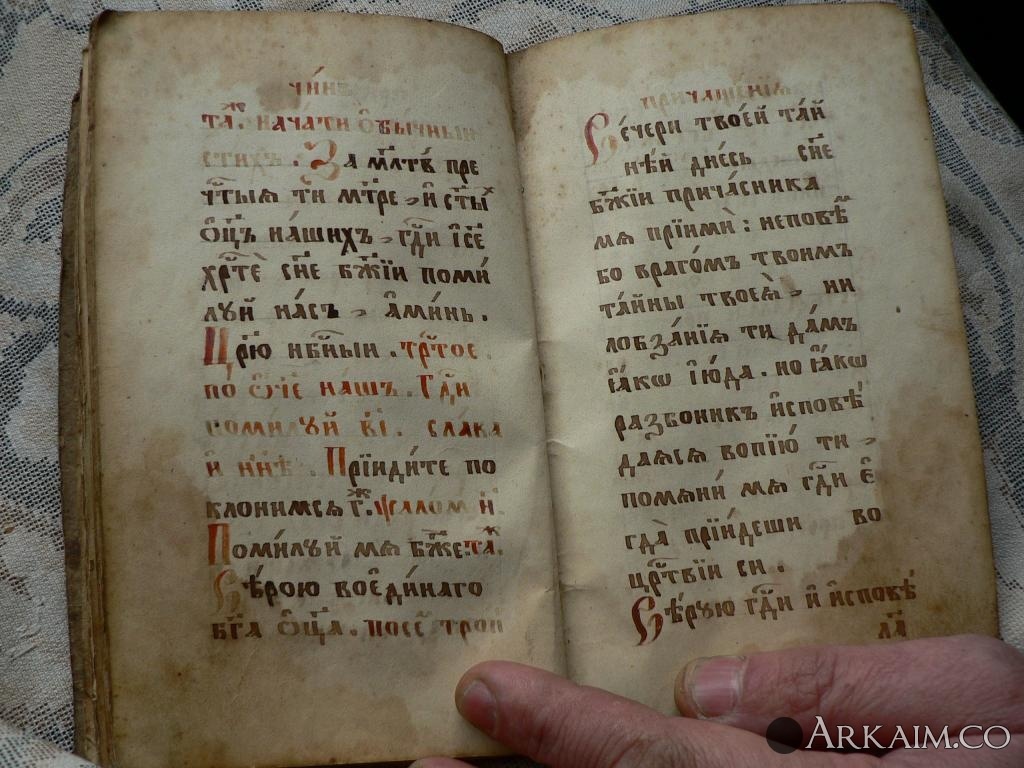 чи́нъ
та́ж. нача́ти ѻ҆бы́чныи
стихъ. За мл҃твъ пре
чⷭ҇тыѧ ти мт҃ре, и҆ ст҃ыⷯ
ѻ҆ц҃ъ на́шихъ, гдⷭ҇и і҆се
хрⷭ҇тѐ сн҃е бж҃їи поми́
лꙋй на́съ, а҆ми́нь.
Цр҃ю нбⷭ҇ныи. трⷭ҇тое.
по ѻ҆́ч҃е на́шъ. Гдⷭ҇и
помилꙋй в҃і. сла́ва
и҆ нн҃ѣ. Прїиди́те по
клонимсѧ г҃.ж ѱало́м н҃.
Поми́лꙋй мѧ бж҃е. та́ж.
Вѣ́рою во є҆ди́наго
бг҃а ѻ҆ц҃а. посе́м трои
причаще́нїѧ
Ве́чери твоє́й та́й
нѣ́й дне́сь сн҃е
бж҃їи прича́сника
мѧ прїимѝ: не повѣ́м
бо враго́мъ твоимъ
та́йны твоеѧ̀, ни
лобза́нїѧ ти да́мъ
ꙗ҆́кѡ і҆ю́да. но ꙗ҆́кѡ
разбо́йникъ и҆сповѣ́
даѧсѧ вопїю́ ти,
помѧни́ мѧ гдⷭ҇и є҆
гда̀ прїи́деши во
црⷭ҇твїи си.
Вѣ́рꙋю гдⷭ҇и и҆ и҆сповѣ́
да
ARKAIM.CO